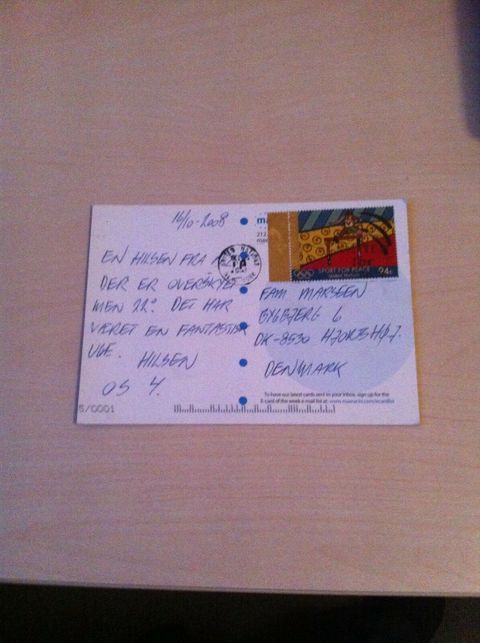 16/10-2008
EN HILSEN FRA
DER ER OVERSKYET
MEN 22° DET HAR
VÆRET EN FANTASTISK
UGE. HILSEN
OS 4.
212
SPORT FOR PEACE
94c
FAM MARSEEN
BYGBJERG 6
DK-8530 HJORTSHØJ.
DENMARK
To have our latest cards sent to your inbox, sign up for the
E-card of the week e-mail list at: www.maxracks.com/ecardlist
5/0001